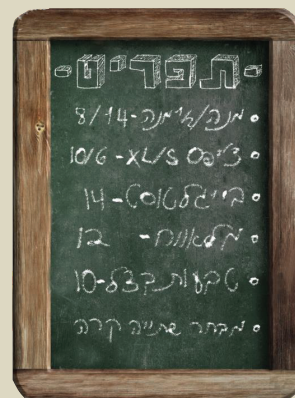 תפריט
מנה/חצי מנה - 8/14
צ'יפס XL/S - 10/6
בייגל טוסט - 14
מלאווח - 12
טבעות בצל - 10
מבחר שתייה קרה